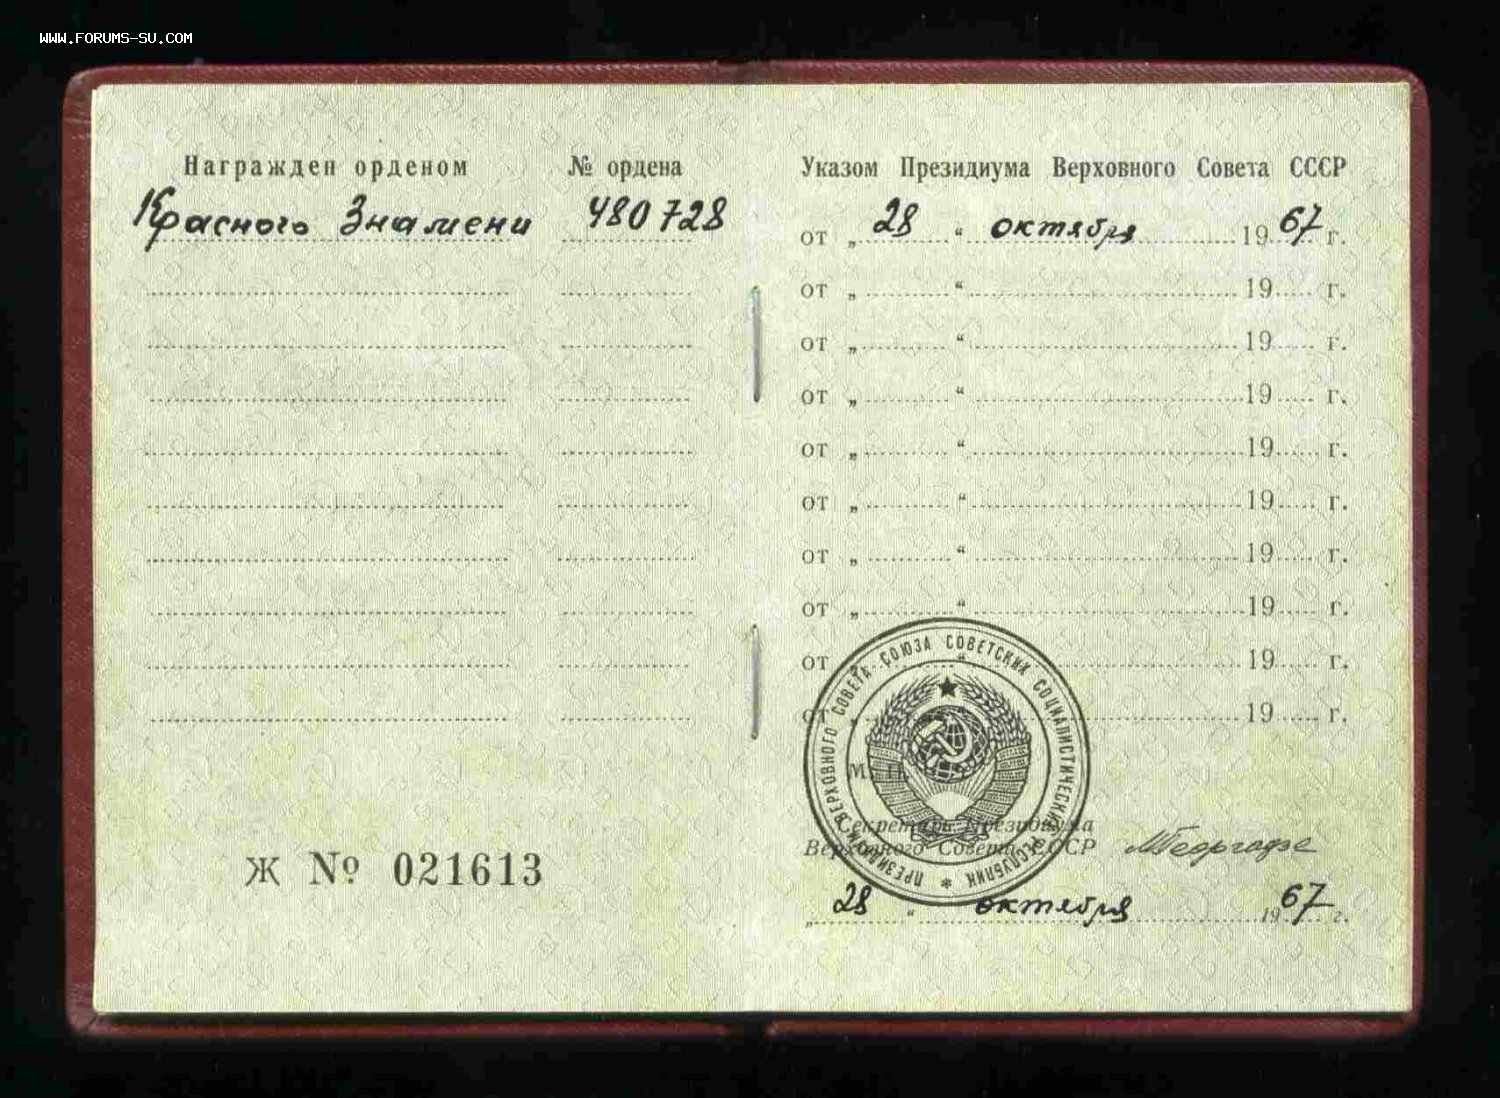 WWW.FORUMS-SU.COM
Награжден орденом № ордена
Красного Знамени 480728
Указом Президиума Верховного Совета СССР
от „ 28 “ октября 19 67 г.
от „ “ 19 г.
от „ “ 19 г.
от „ “ 19 г.
от „ “ 19 г.
от „ “ 19 г.
от „ “ 19 г.
от „ “ 19 г.
от „ “ 19 г.
от „ “ 19 г.
ПРЕЗИДИУМ ВЕРХОВНОГО СОВЕТА СОЮЗА СОВЕТСКИХ СОЦИАЛИСТИЧЕСКИХ РЕСПУБЛИК
М. П.
Секретарь Президиума
Верховного Совета СССР МГеоргадзе
„ 28 “ октября 19 67 г.
Ж № 021613